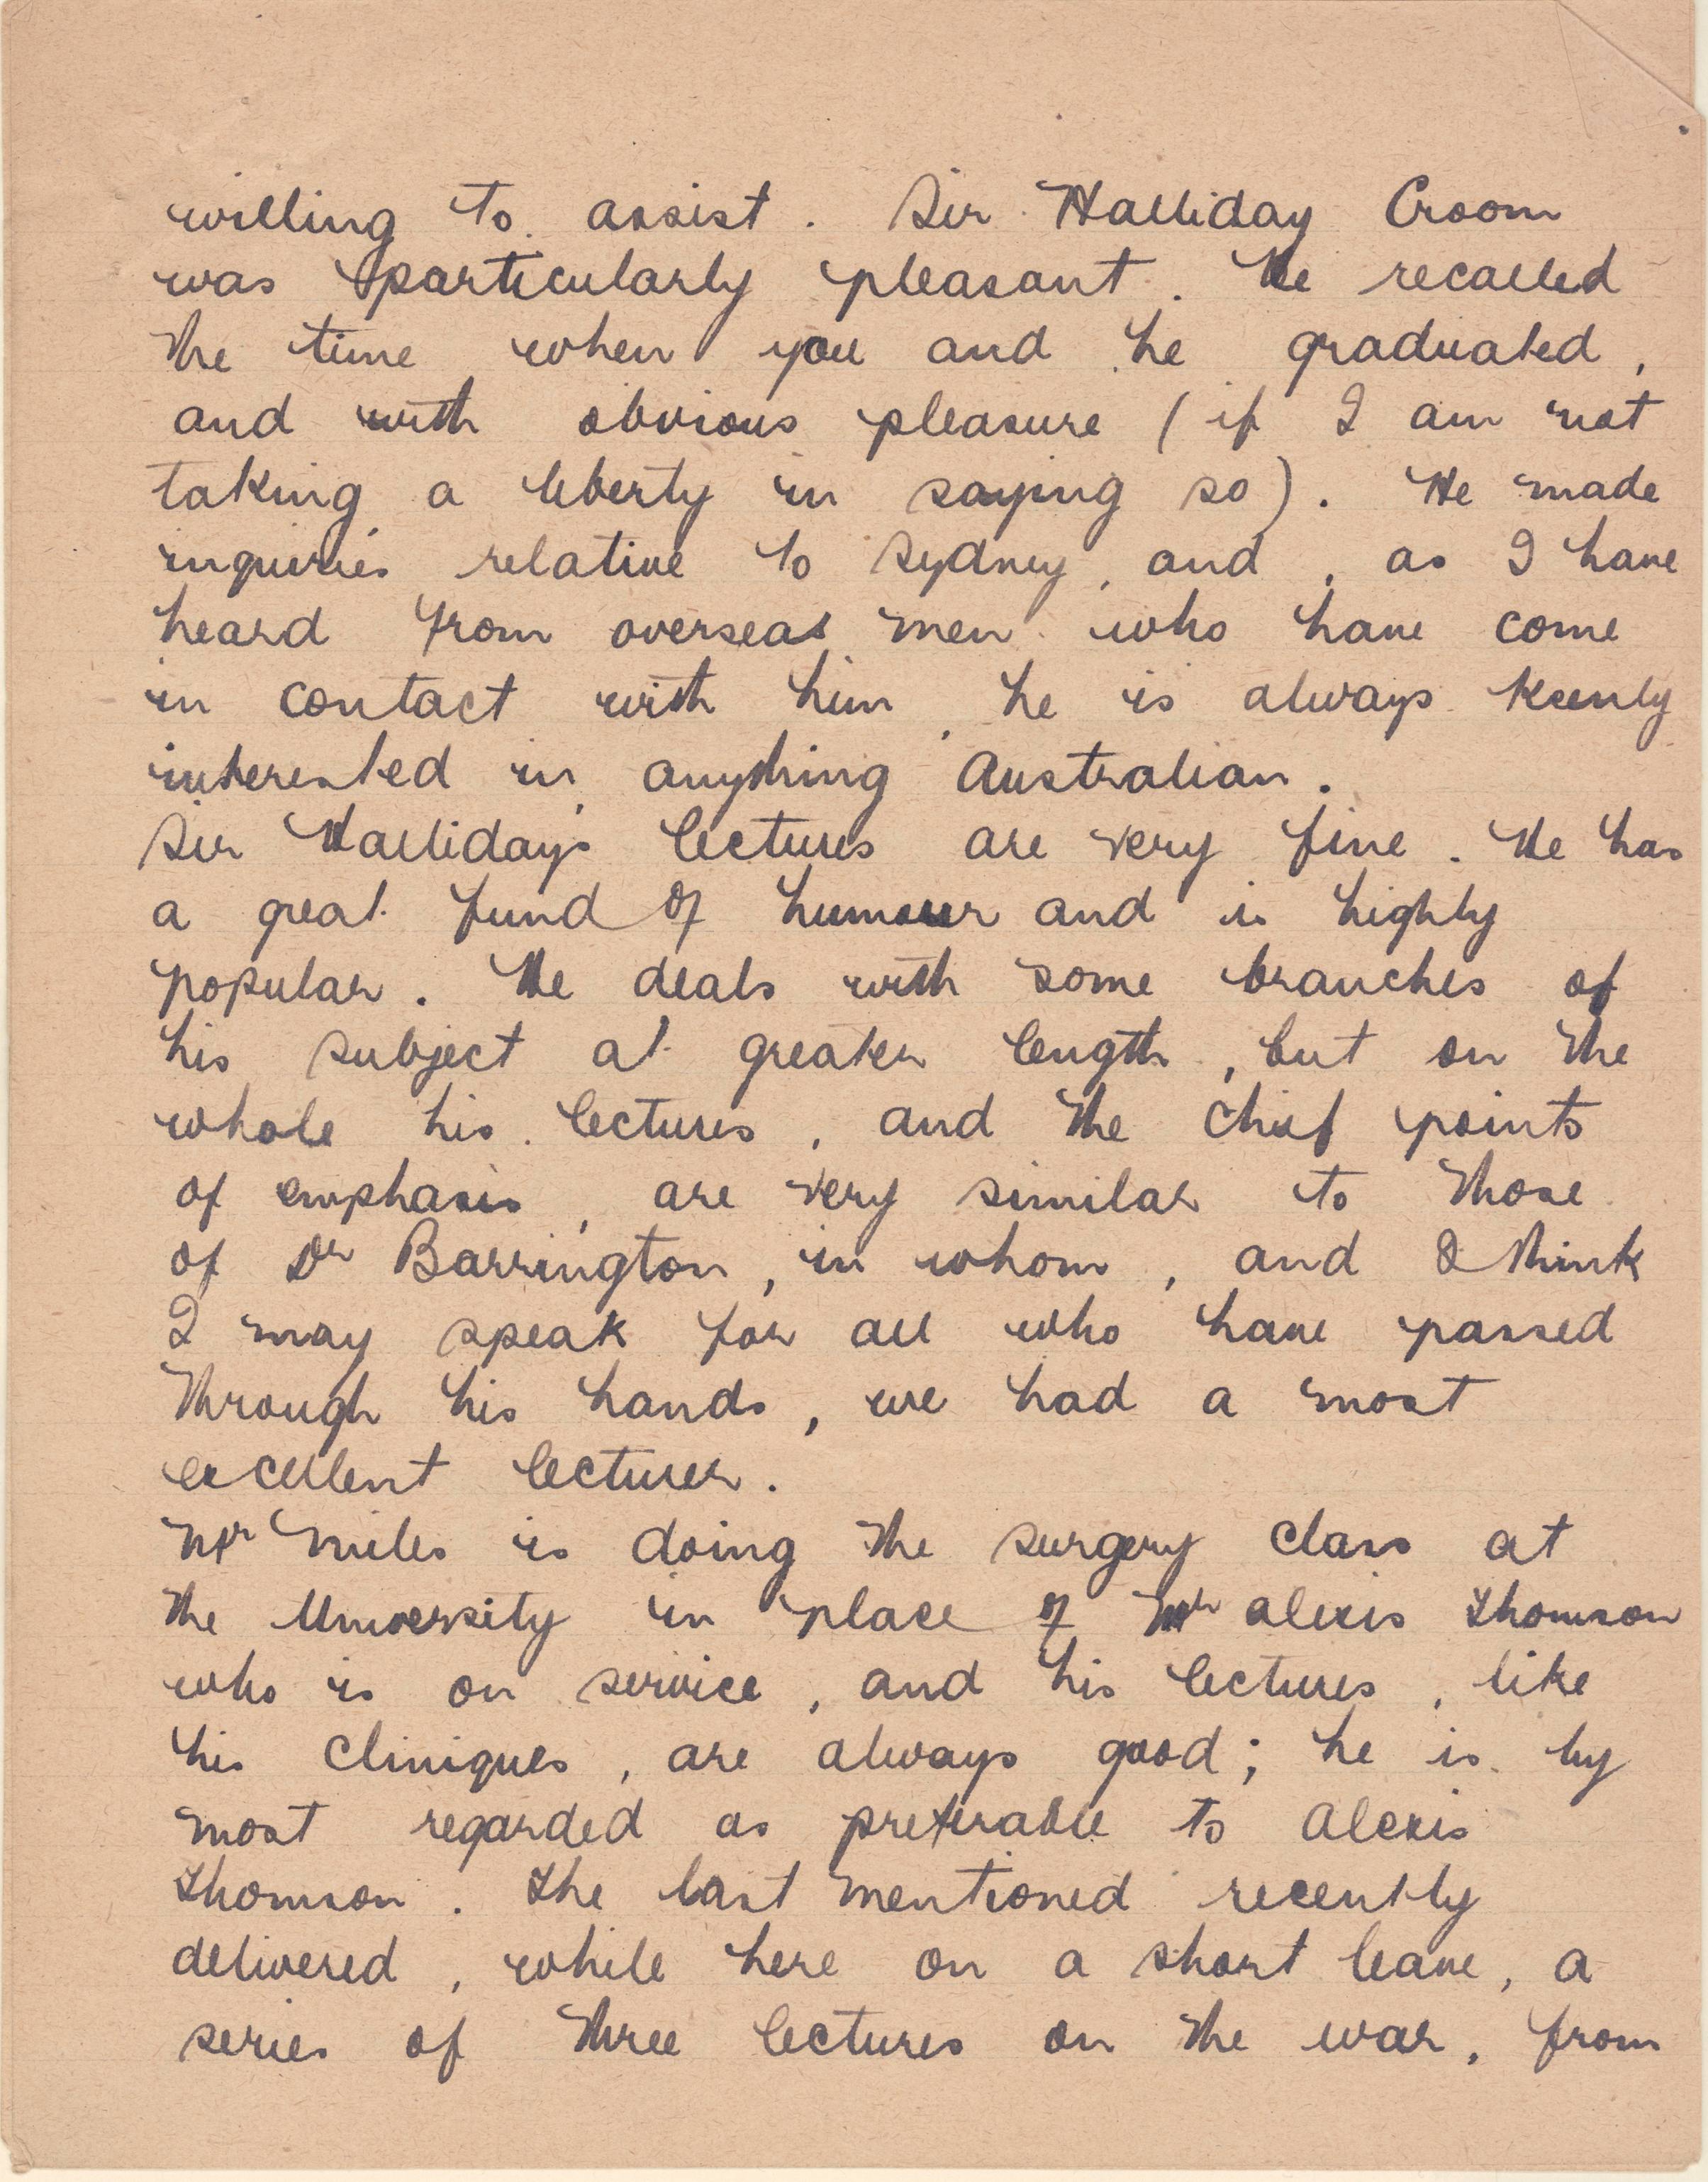 willing to assist. Sir Halliday Croom
was particularly pleasant. He recalled
the time when you and he graduated,
and with obvious pleasure (if I am not
taking a liberty in saying so). He made
inquiries relative to Sydney, and, as I have
heard from overseas men who have come
in contact with him, he is always keenly
interested in anything Australian.
Sir Halliday's lectures are very fine. He has
a great fund of humour and is highly
popular. He deals with some branches of
his subject at greater length, but on the
whole his lectures, and the chief points
of emphasis, are very similar to those
of Dr Barrington, in whom, and I think
I may speak for all who have passed
through his hands, we had a most
excellent lecturer.
Mr Miles is doing the surgery class at
the University in place of Mr Alexis Thomson
who is on service, and his lectures, like
his cliniques, are always good; he is by
most regarded as preferable to Alexis
Thomson. The last mentioned recently
delivered, while here on a short leave, a
series of three lectures on the war, from